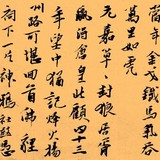 年金戈鐵馬氣吞
萬里如虎
元嘉草草封狼居胥
贏得倉皇北顧四十三
年望中猶記烽火揚
州路可堪回首佛狸
祠下一片神鴉社鼓憑